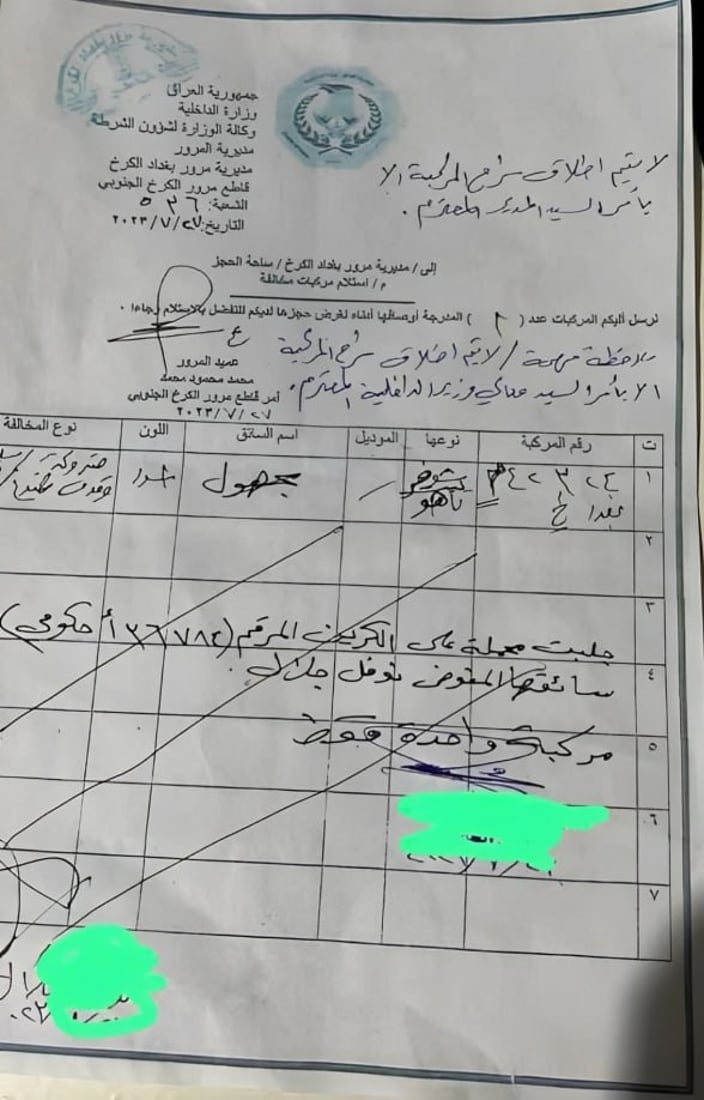 جمهورية العراق
وزارة الداخلية
وكالة الوزارة لشؤون الشرطة
مديرية المرور
مديرية مرور بغداد الكرخ
قاطع مرور الكرخ الجنوبي
الشعبة: ٥٣٦
التاريخ: ٢٠٢٣/٧/٢٧
لا يتم اطلاق سراح المركبة الا
بأمر السيد المدير المحترم.
إلى / مديرية مرور بغداد الكرخ / ساحة الحجز
م / استلام مركبات مخالفة
نرسل اليكم المركبات عدد ( ١ ) المدرجة أوصافها أدناه لغرض حجزها لديكم للتفضل بالاستلام رجاءا .
ملاحظة مهمة / لا يتم اطلاق سراح المركبة
الا بأمر السيد معالي وزير الداخلية المحترم.
ع
عميد المرور
محمد محمود محمد
آمر قاطع مرور الكرخ الجنوبي
٢٠٢٣/٧/٢٧
ت رقم المركبة نوعها الموديل اسم السائق اللون نوع المخالفة
١ بغداد تاهو مجهول متروكة
٢
٣
جلبت محملة على الكرين المرقم (٣٦٧٨٤ أ حكومي)
٤
سائقها المفوض نوفل جلال.
٥ مركبة واحدة فقط
٦
٧